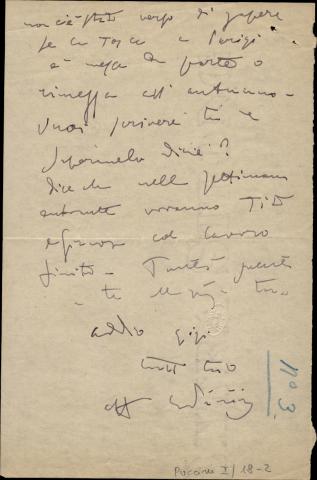 non c'è stato verso di sapere
se la Tosca a Parigi
è messa da parte o
rimessa all'autunno -
Vuoi scrivere tu e
sapermelo dire?
dice che nella settimana
entrante verranno Tito
e Giacosa col lavoro
finito - Tante
a te
addio Gigi
tutto tuo
aff
n° 3
Puccini I/18-2